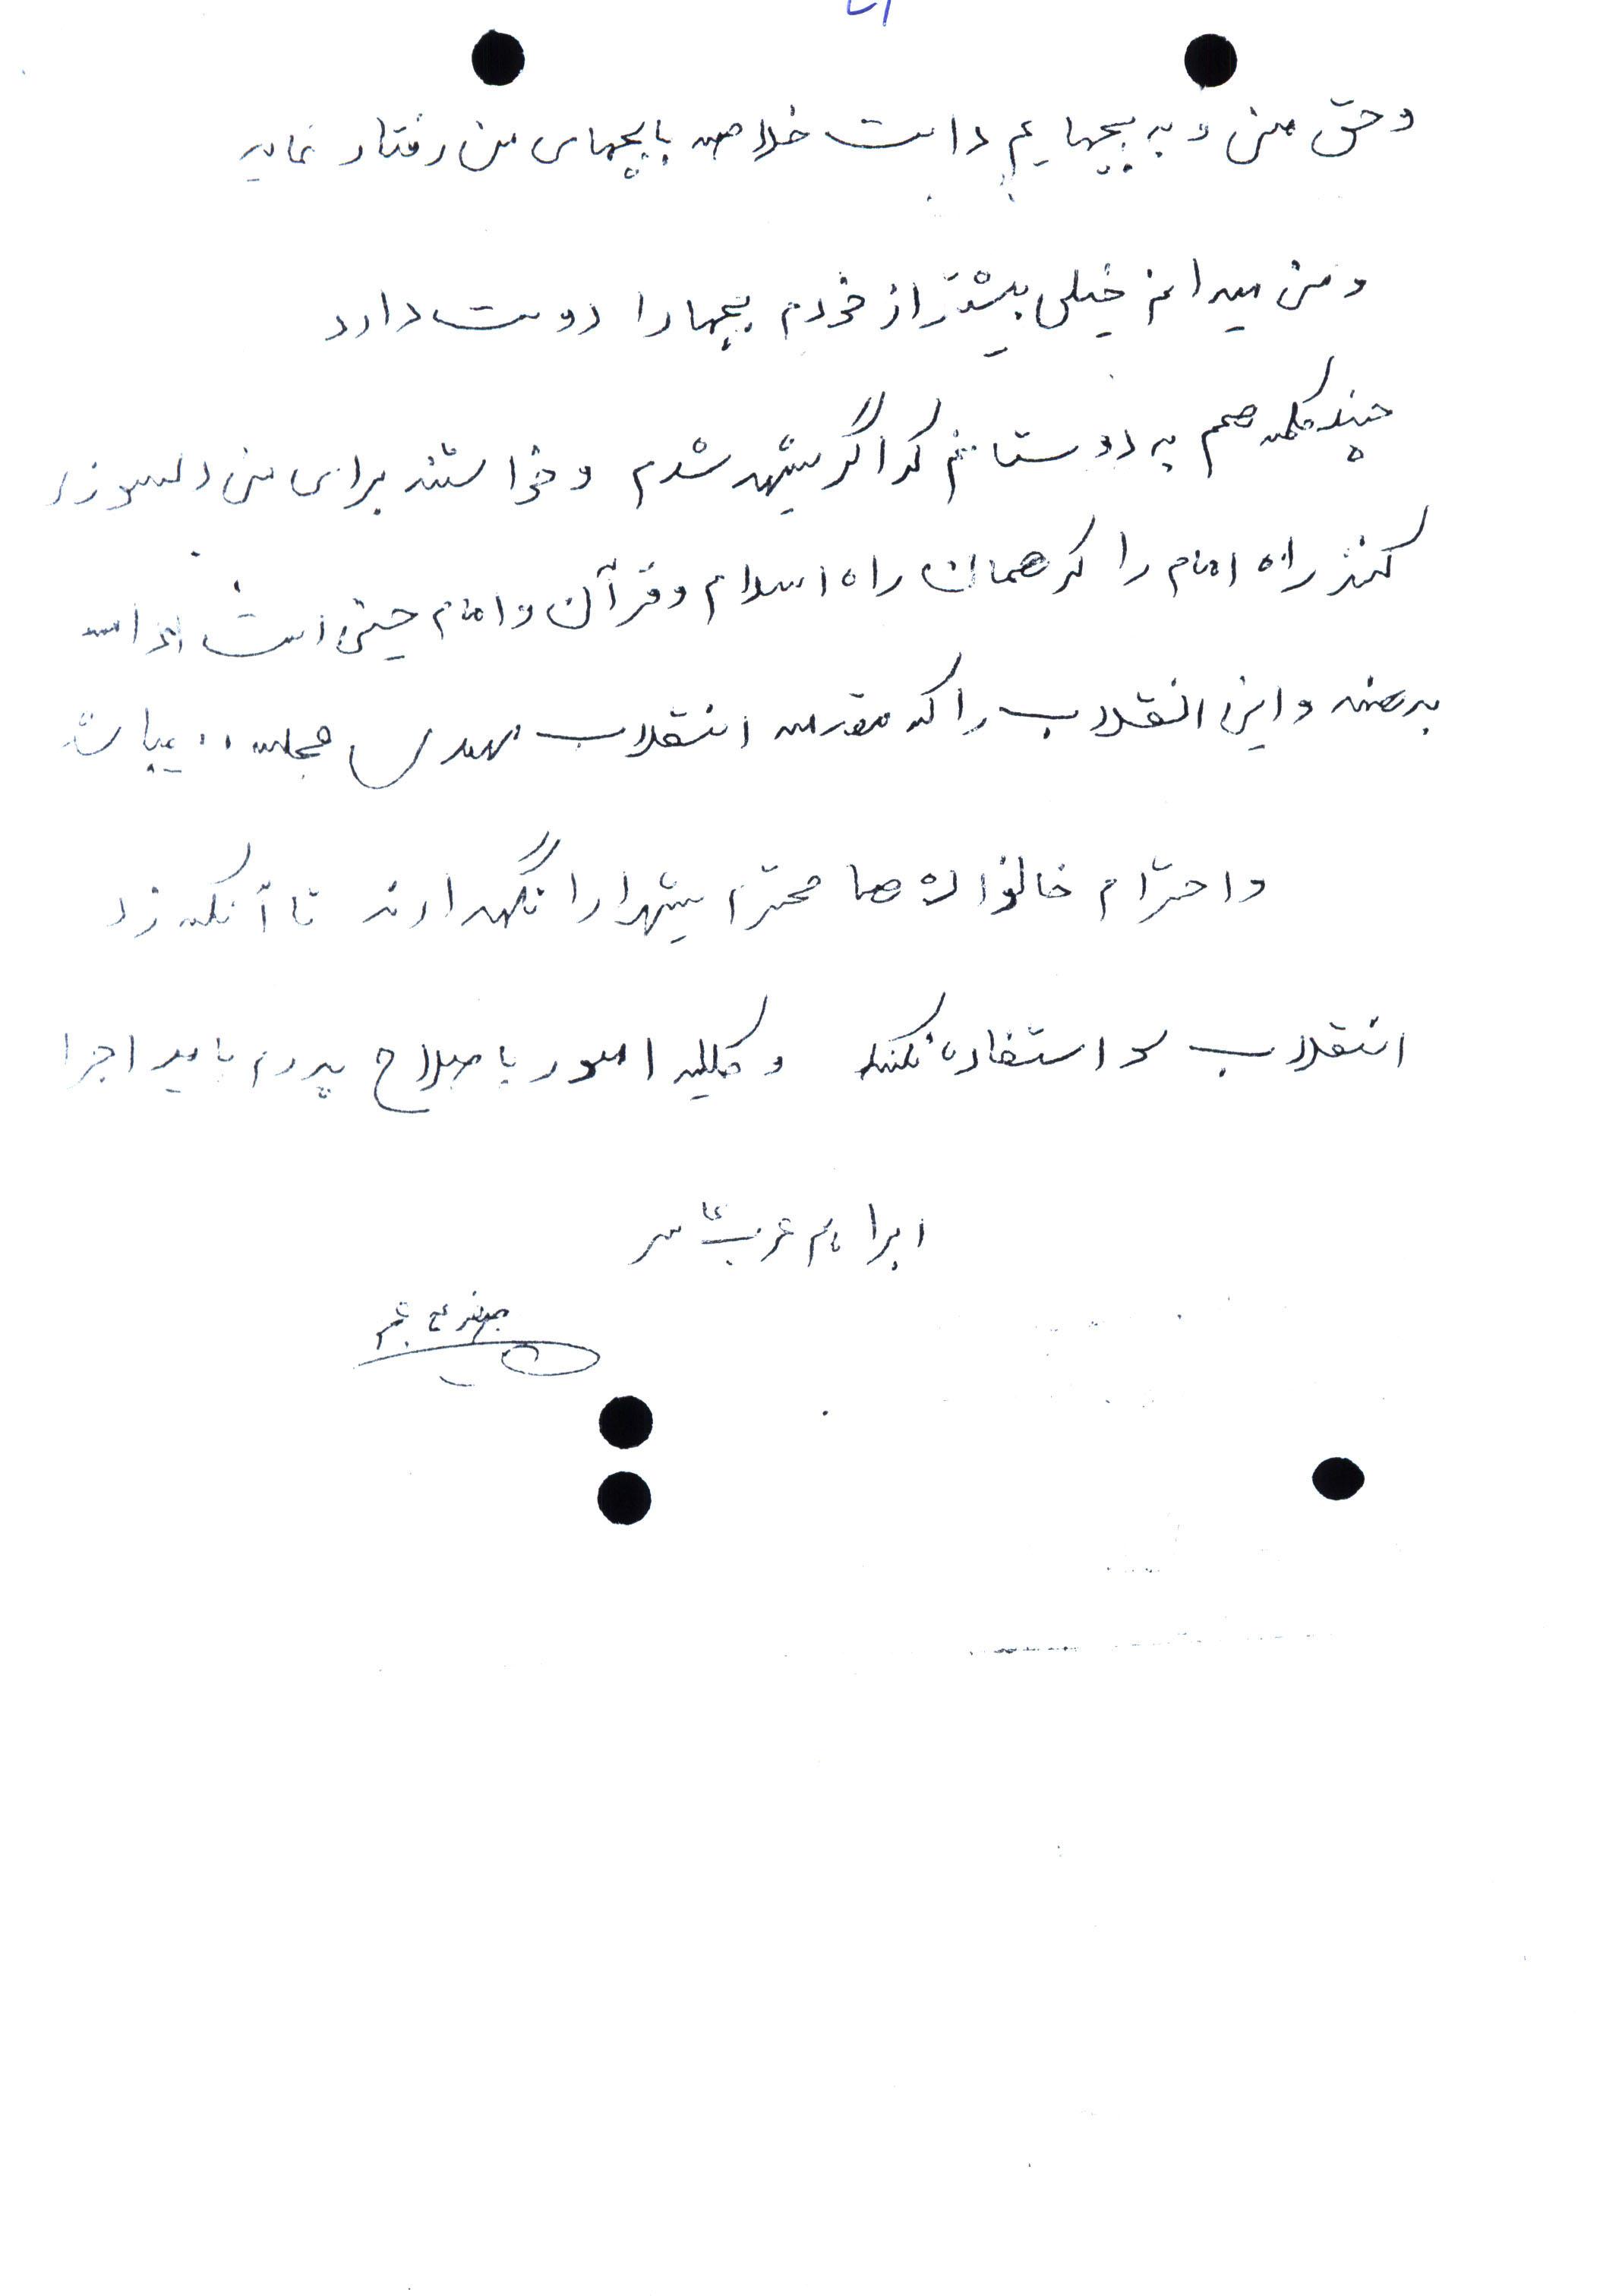 و حق من و به بچهایم دانست خلاصه با بچهای من رفتار نماید
و من میدانم خیلی بیشتر از خودم بچها را دوست دارد
چند کلمه هم به دوستانم که اگر شهید شدم و خواستند برای من دلسوزی
کنند راه امام را که همان راه اسلام و قرآن و امام خمینی است ادامه
بدهند و این انقلاب را که مقدمه انقلاب مهدی میباشد
و احترام خانواده ها محترم شهدا را نگهدارند تا آنکه
انقلاب سو استفاده نکند و کلیه امور با صلاح پدرم باید اجرا
ابراهیم عرب